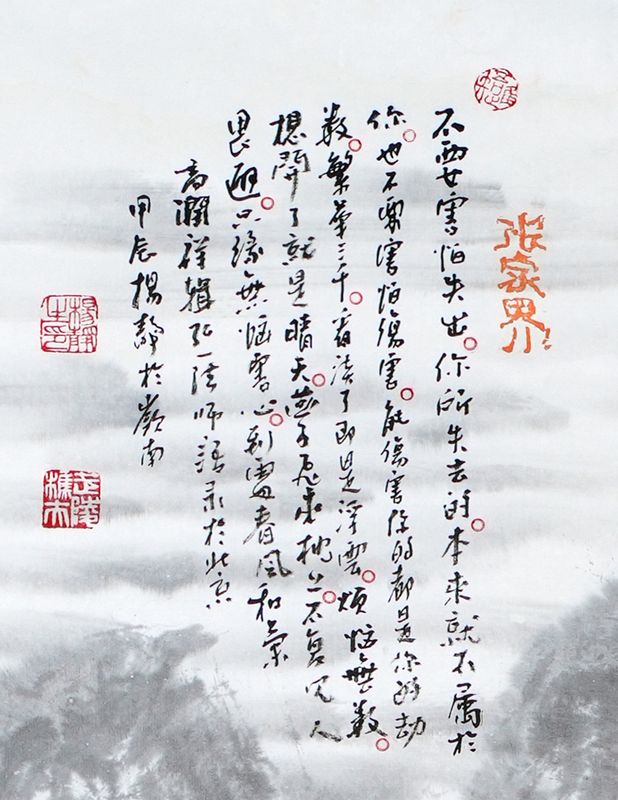 张家界
不要害怕失去。你所失去的。本来就不屬於
你。也不要害怕傷害。能傷害你的都是你的劫
數。繁華三千。看淡了即是浮雲。煩惱無數。
想開了就是晴天。燕子飛來枕上。不復見人
畏避。只緣無惱害心。到處春風和氣
高潤祥輯弘一法師語录於北京
甲辰楊靜於嶺南